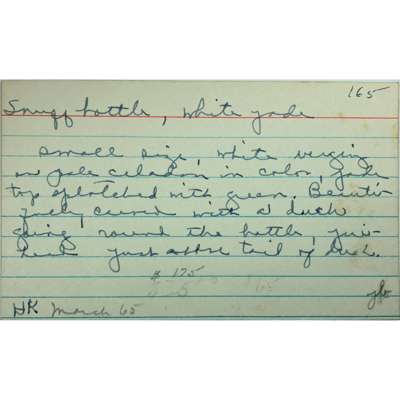 165
Snuff bottle, white jade
small size, white verging
on pale celadon in color, jade
top splotched with green. Beauti-
fully carved with a duck
going round the bottle,
head just above tail of duck.
$ 175
HK March 65